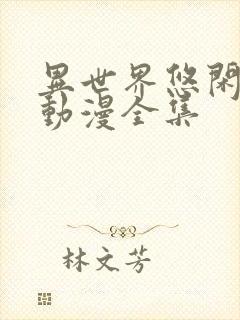 異世界悠閑
動漫全集
林文芳